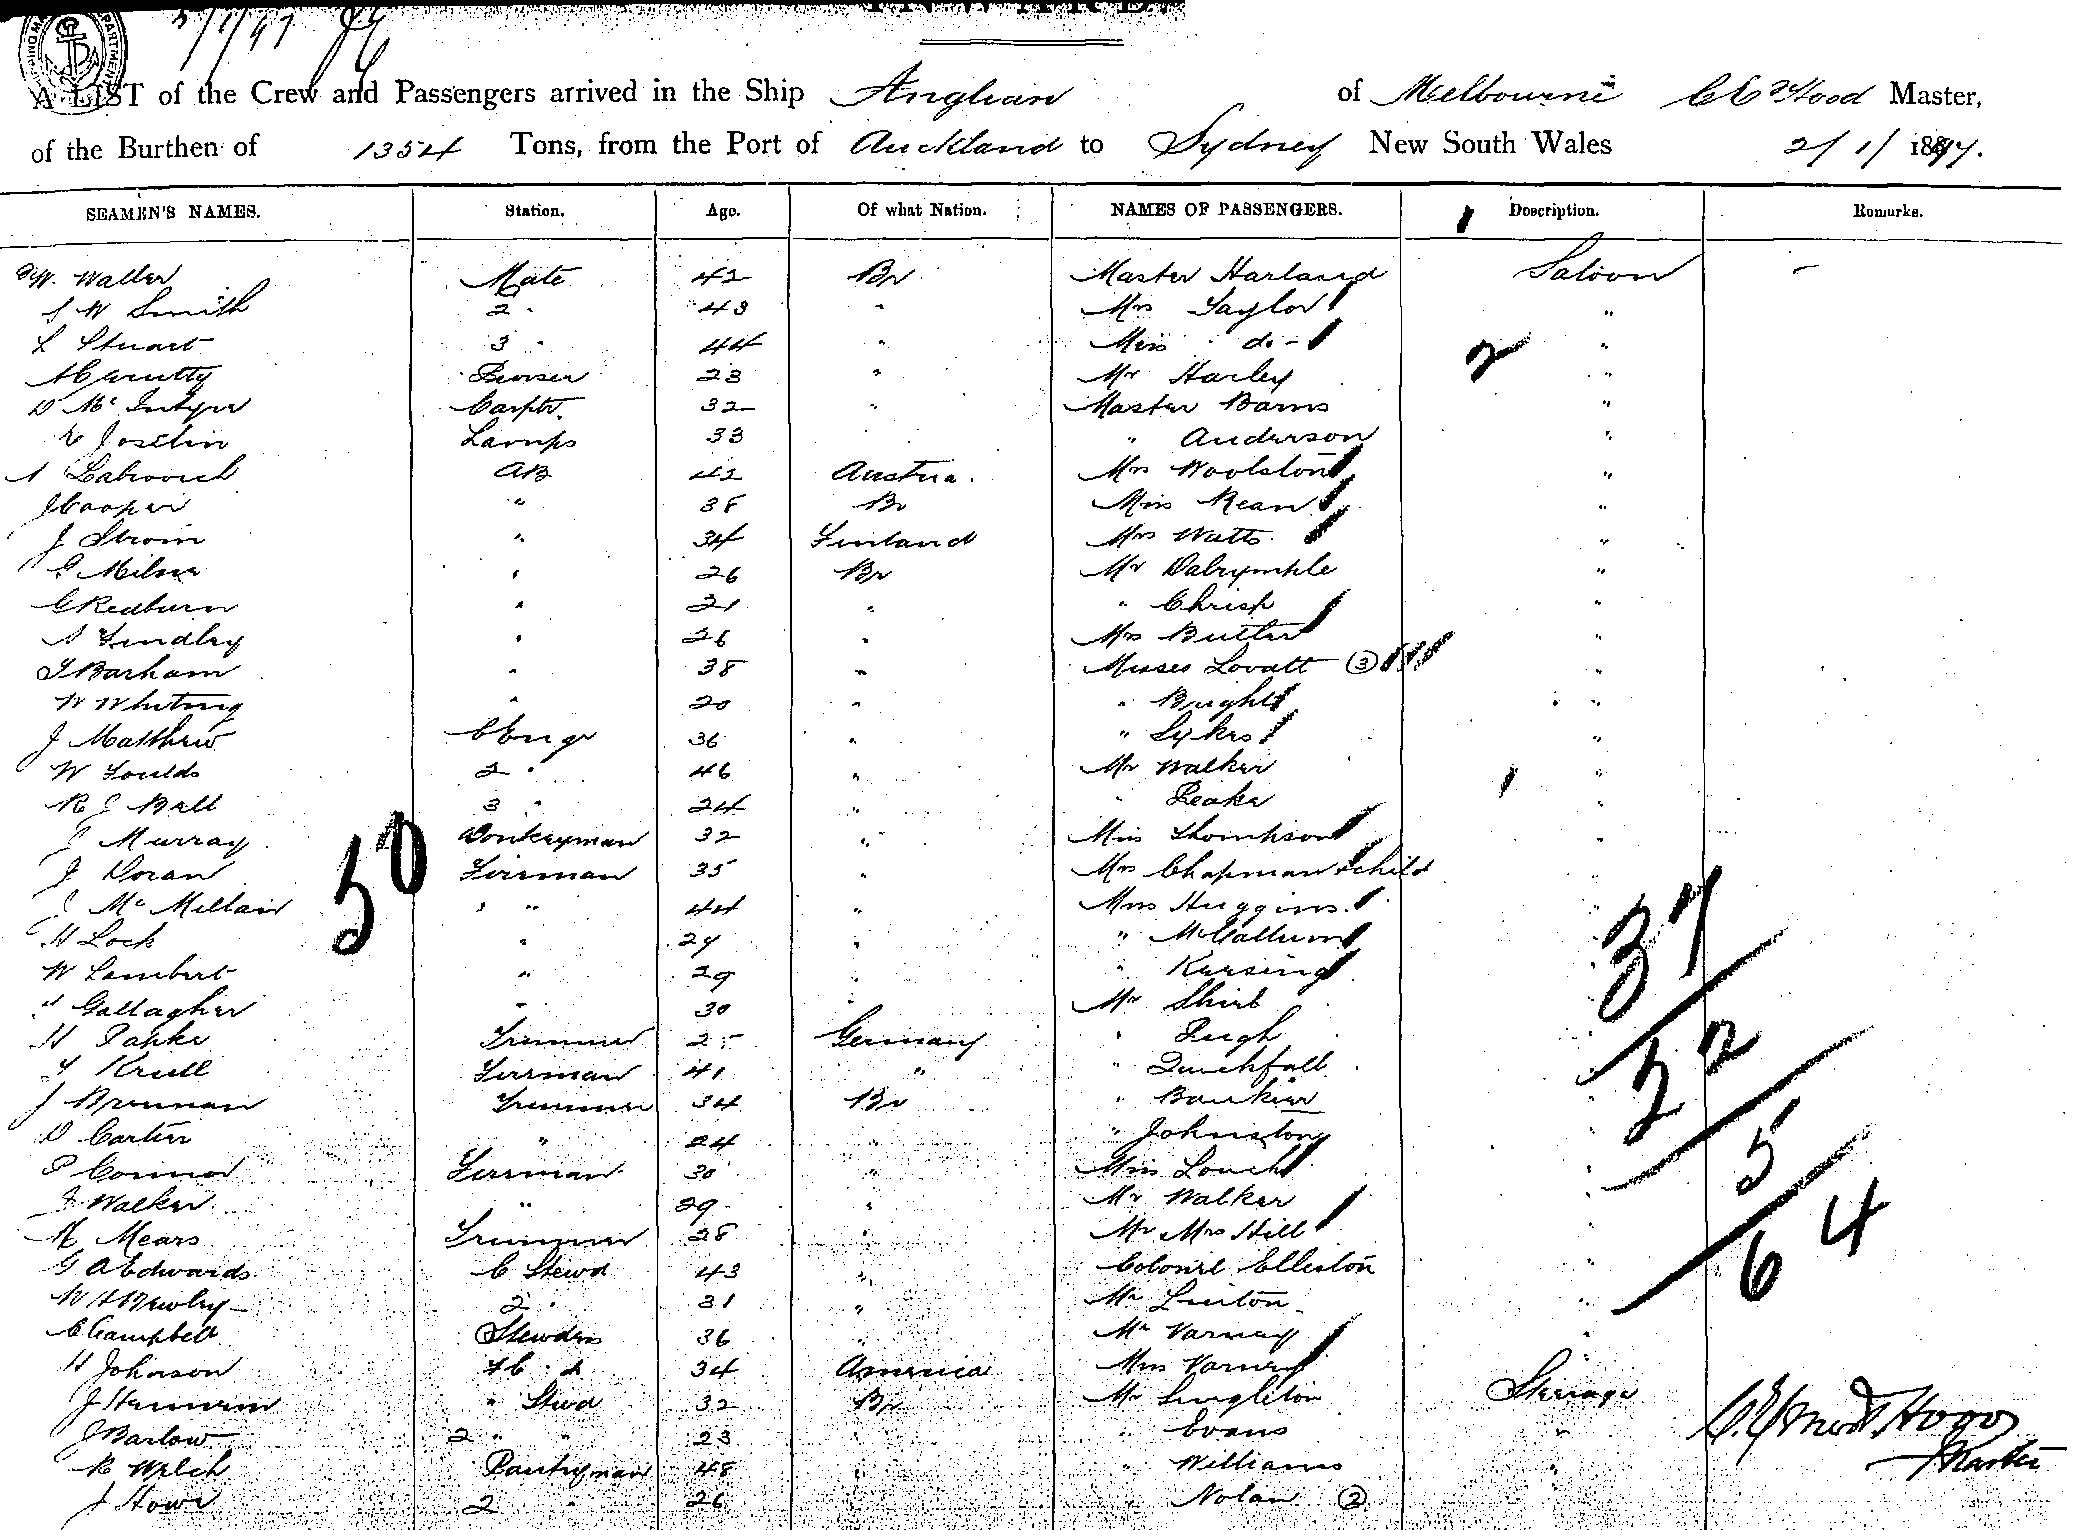 2/1/97
A LIST of the Crew and Passengers arrived in the Ship Anglian of Melbourne Master,
of the Burthen of 1354 Tons, from the Port of Auckland to Sydney New South Wales 2/1/1897.
SEAMEN'S NAMES. Station. Age. Of what Nation. NAMES OF PASSENGERS. Description. Remarks.
W. Waller Mate 42 Br Master Harland Saloon
S W Smith 2 " 43 " Mrs Taylor "
L Stuart 3 " 44 " Miss do "
23 " Mr Harley "
D Mc Intyre Carptr. 32 " Master Barns "
Joselin Lamps 33 " Anderson "
AB 42 Austria. Mrs Woolston "
J Cooper " 38 Br Miss Kean "
J Strom " 34 Finland Mrs Watts "
G Milne " 26 Br Mr Dalrymple "
G Redburn " 21 " " Chrisp "
A Lindley " 26 " Mrs Butler "
T Barham " 38 " Misses Lovatt ③ "
W Whiting " 20 " " Bright "
J Matthew C Engr 36 " " Sykes "
W Foulds 2 " 46 " Mr Walker "
R J Bell 3 " 24 " " Leake "
J Murray Donkeyman 32 " Miss Thompson "
J Doran Fireman 35 " Mrs Chapman & child
J Mc Millan " 44 " Mrs Huggins "
H Lock " 29 " " McCallum
W Lambert " 29 " Kersing
H Gallagher " 30 " Mr Shirt
H Papke Trimmer 25 Germany " Pugh
F Krull Fireman 41 " "
J Brennan Trimmer 34 Br "
D Carter " 24 " " Johnston
P Connor Fireman 30 " Miss Louch
J Walker " 29 " Mr Walker
M Mears Trimmer 28 " Mr Mrs Hill
G A Edwards C Stewd 43 " Colonel Elleston
W H Newby 2 " 31 " Mr Linton
C Campbell Stewdess 36 " Mr Varney
H Johnson 34 America Mrs Varney
" Stewd 32 Br Mr Singleton Steerage
J Barlow 2 " " 23 " " Evans "
R Welch Pantryman 48 " " Williams "
J Howe 2 " 26 " " Nolan ②
50
37
32
5
64
Hood
Master